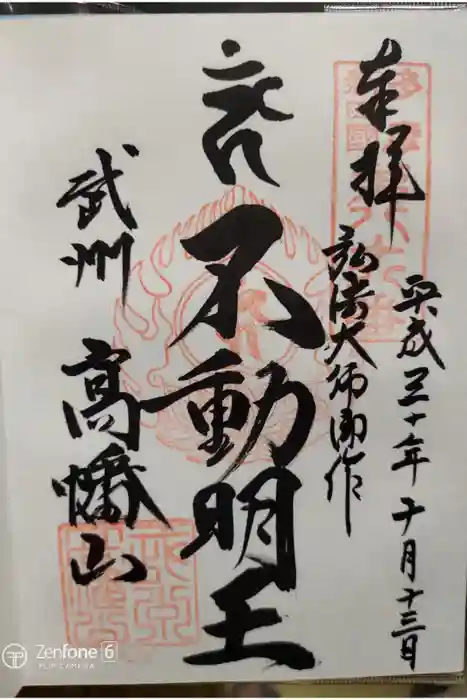 奉拝
平成三十年十月十三日
弘法大師御作
不動明王
武州
高幡山
Zenfone 6
FLIP CAMERA